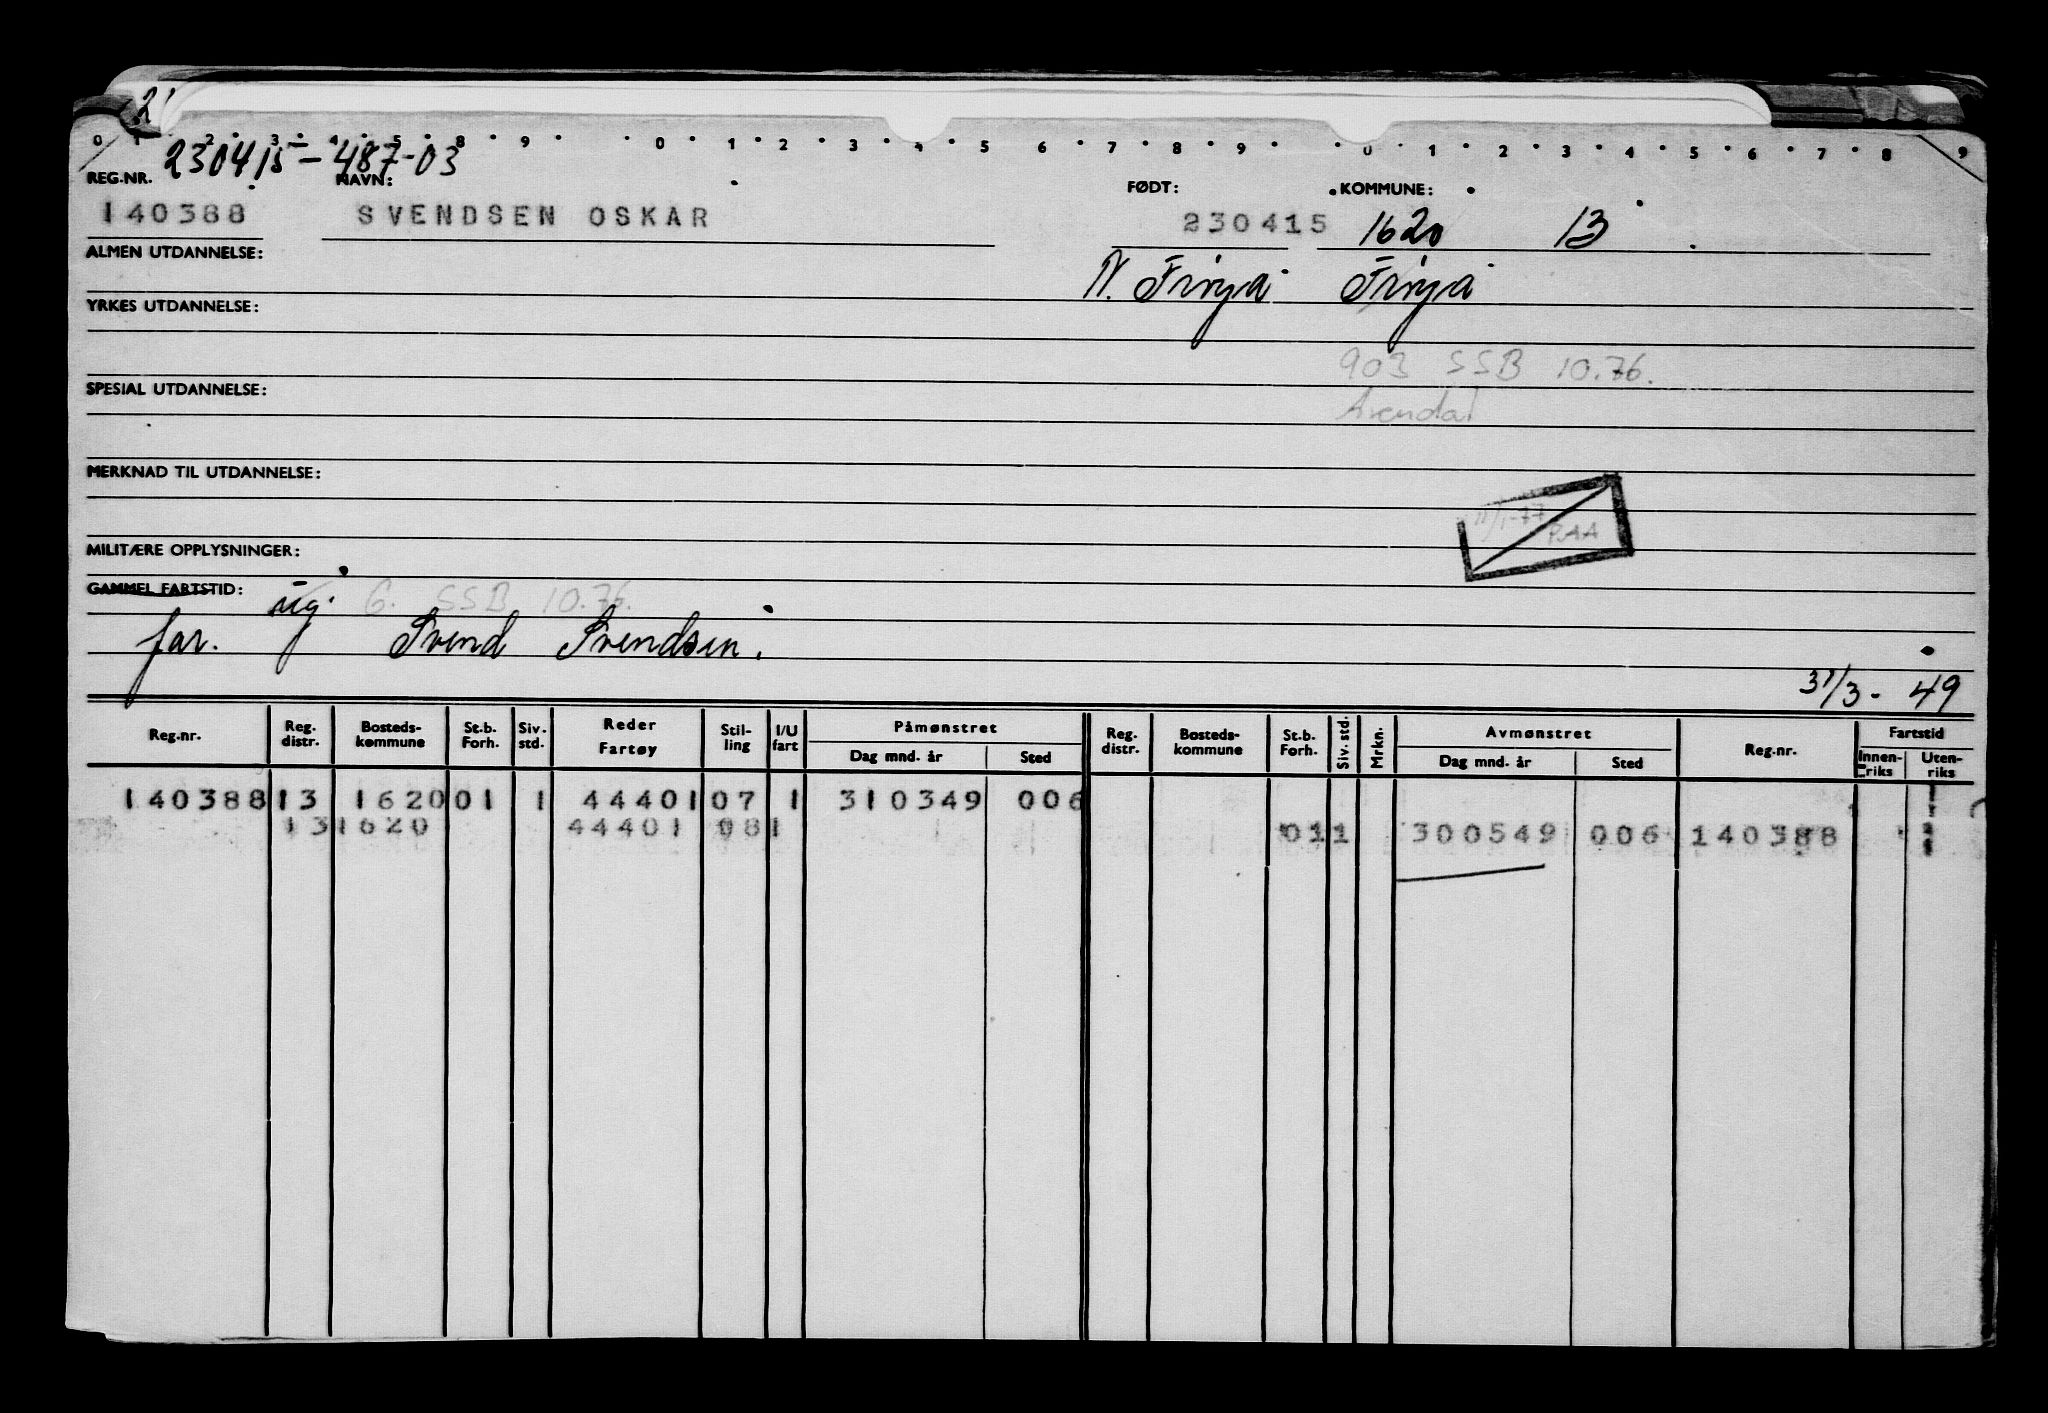 2'
0 1 2 3 4 5 8 9 0 1 2 3 4 5 6 7 8 9 0 1 2 3 4 5 6 7 8 9
230415-487-03
REG.NR. NAVN: FØDT: KOMMUNE:
140388 SVENDSEN OSKAR 230415 1620 13
ALMEN UTDANNELSE:
N. Frøya Frøya
YRKES UTDANNELSE:
903 SSB 10.76.
SPESIAL UTDANNELSE:
Arendal
MERKNAD TIL UTDANNELSE:
11/1-77
PAA
MILITÆRE OPPLYSNINGER:
GAMMEL FARTSTID:
ug. G. SSB 10.76.
far. Svend Svendsen.
31/3 - 49
Reg.nr. Reg. distr. Bosteds-kommune St.b. Forh. Siv. std. Reder Fartøy Stil-ling I/U fart Påmønstret Dag mnd. år Sted Reg. distr. Bosteds-kommune St.b. Forh. Siv. std. Mrkn. Avmønstret Dag mnd. år Sted Reg.nr. Fartstid Innen-riks Uten-riks
140388 13 1620 01 1 44401 07 1 310349 006
13 1620 44401 08 1 01 1 300549 006 140388